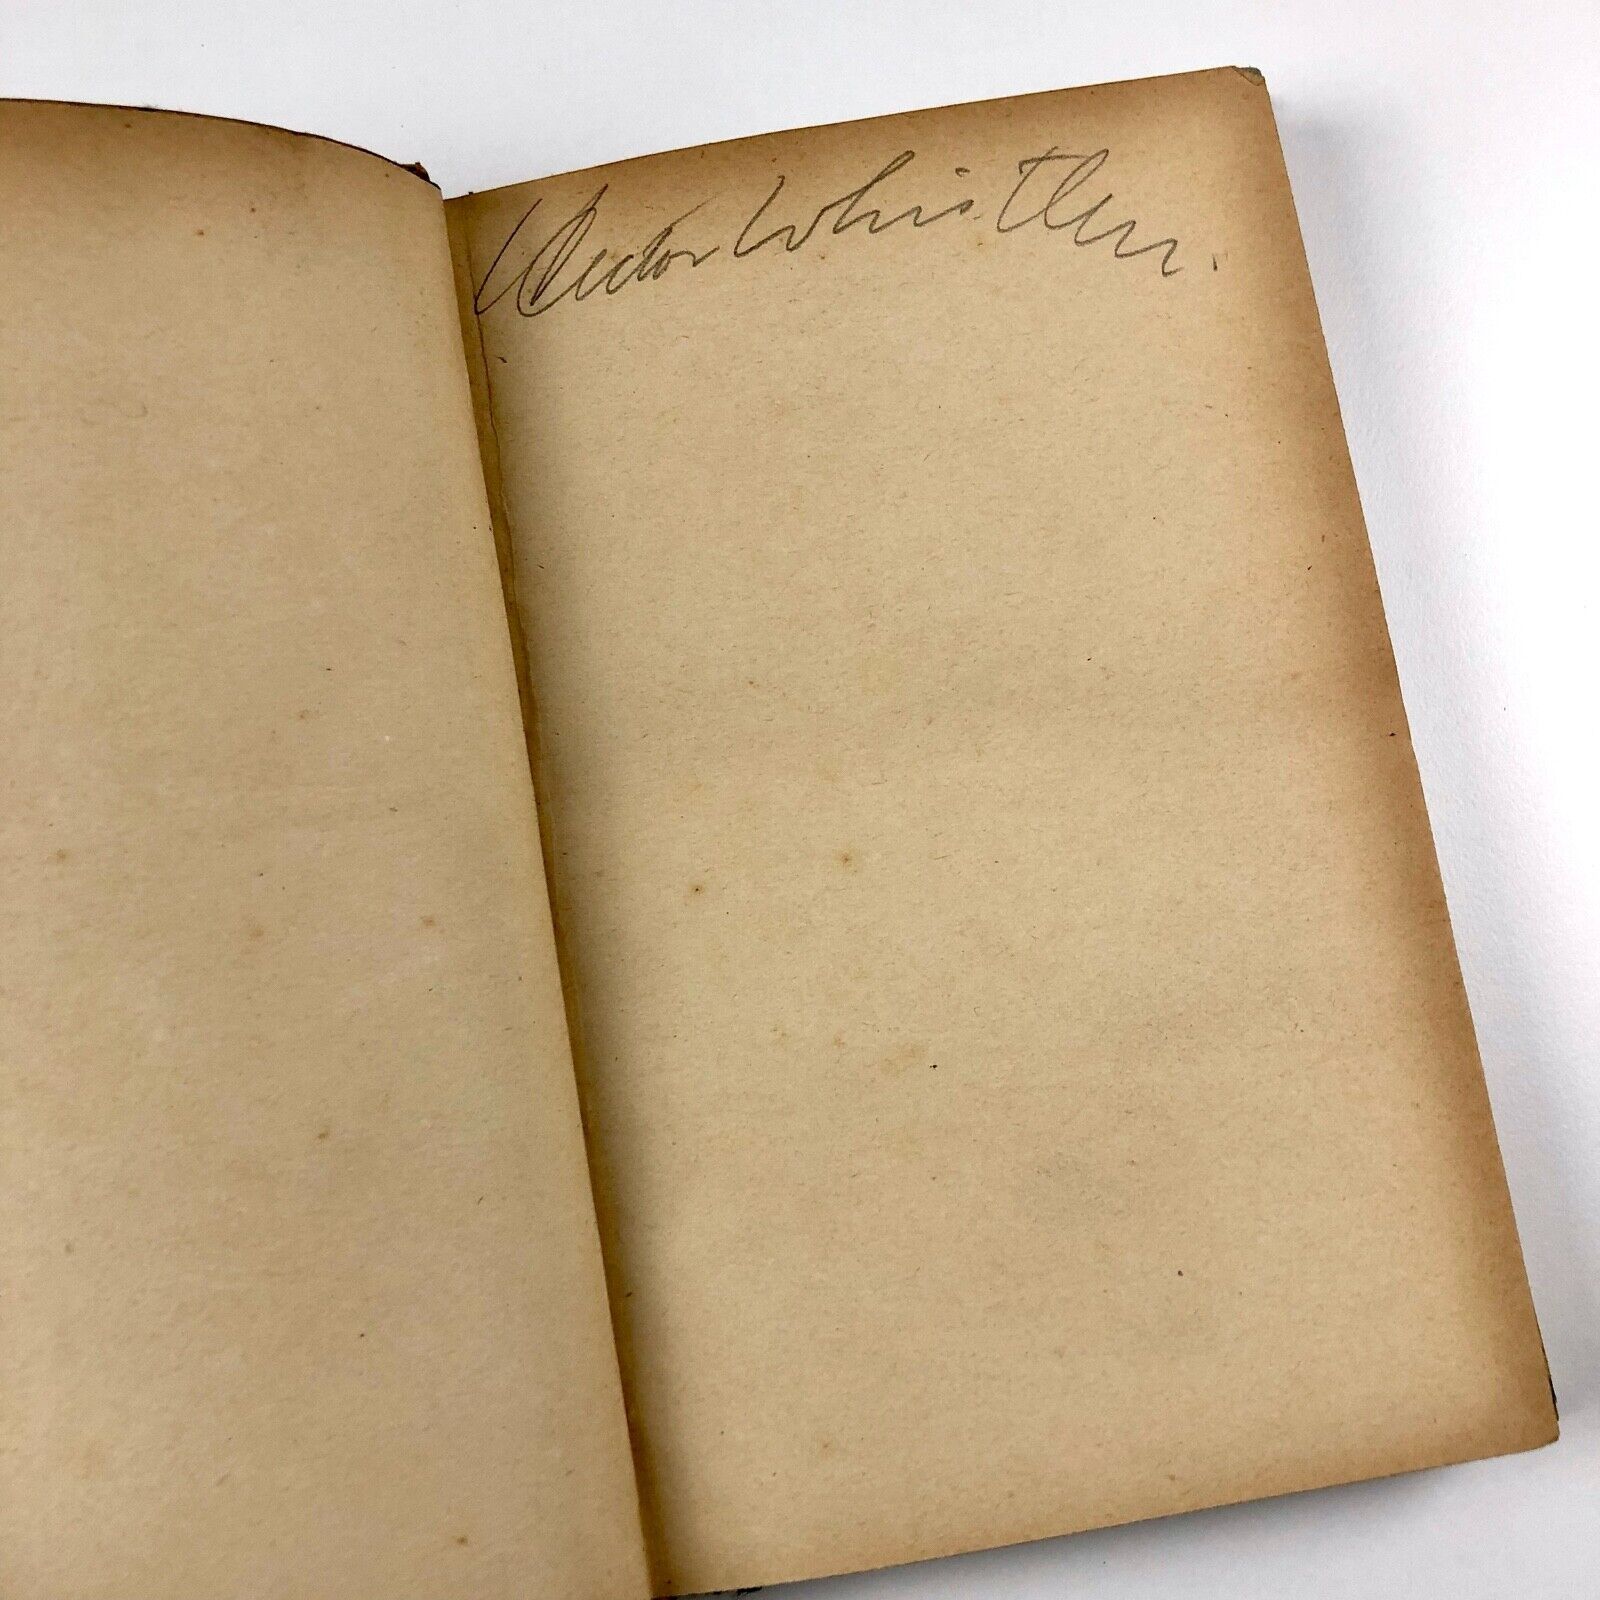 Hector Whistler.